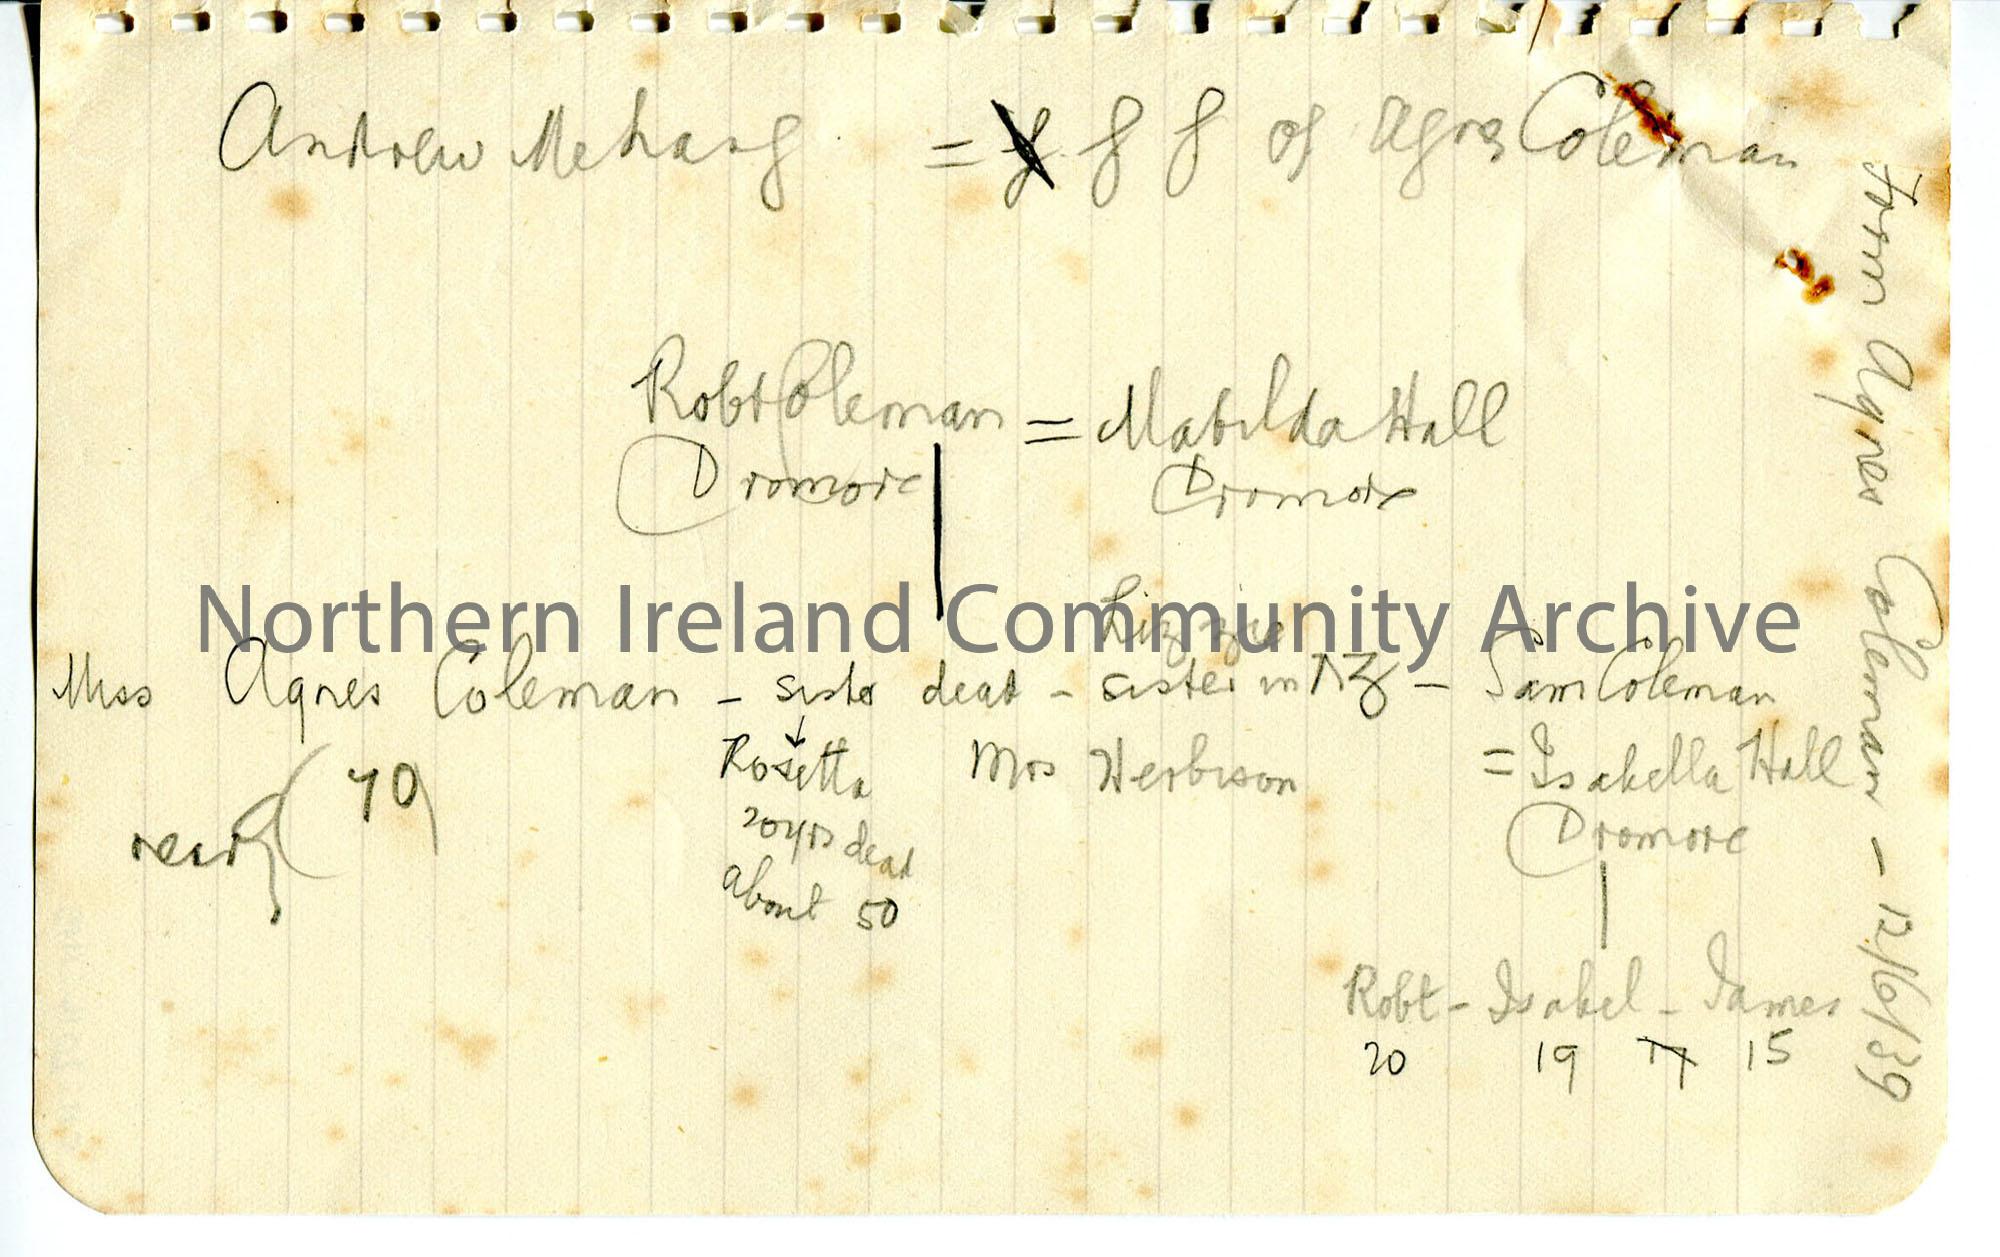 Andrew Meharg = g g of Agnes Coleman
Robt Coleman = Matilda Hall
Dromore Dromore
Northern Ireland Community Archive
Lizzie
Miss Agnes Coleman - sister dead - sister in NZ - Sam Coleman
Rosetta Mrs Herbison = Isabella Hall
near 70
20yrs dead Dromore
about 50
Robt - Isabel - James
20 19 17 15
From Agnes Coleman - 12/6/39